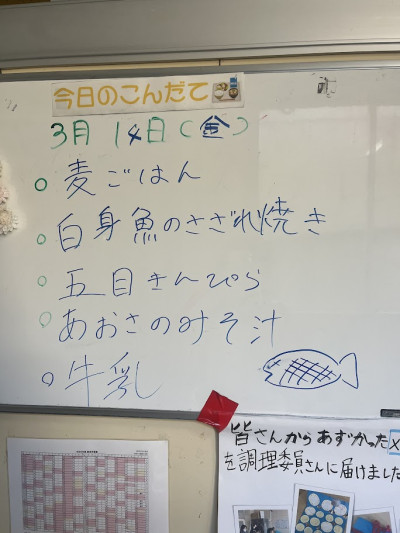 今日のこんだて
3月14日(金)
麦ごはん
白身魚のさざれ焼き
五目きんぴら
あおさのみそ汁
牛乳
皆さんからあずかった
を調理委員さんに届けました